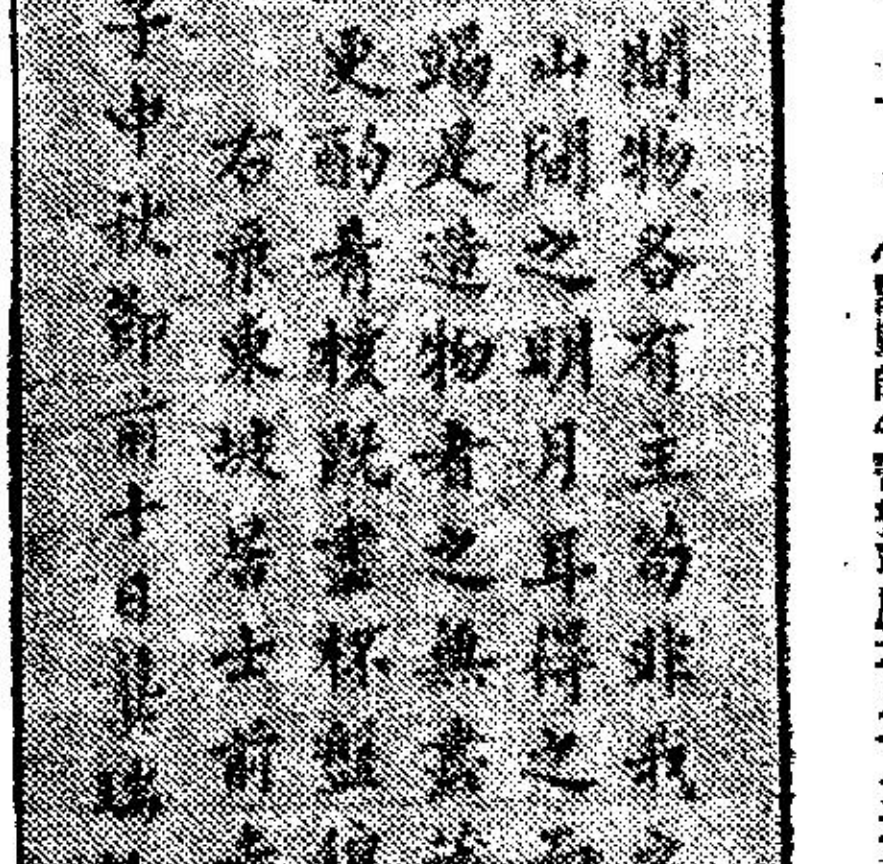 間物各有主苟非我之
山間之明月耳得之而
竭是造物者之無盡藏
更酌肴核既盡杯盤狼
右飛東坡居士前赤
子中秋節前十日